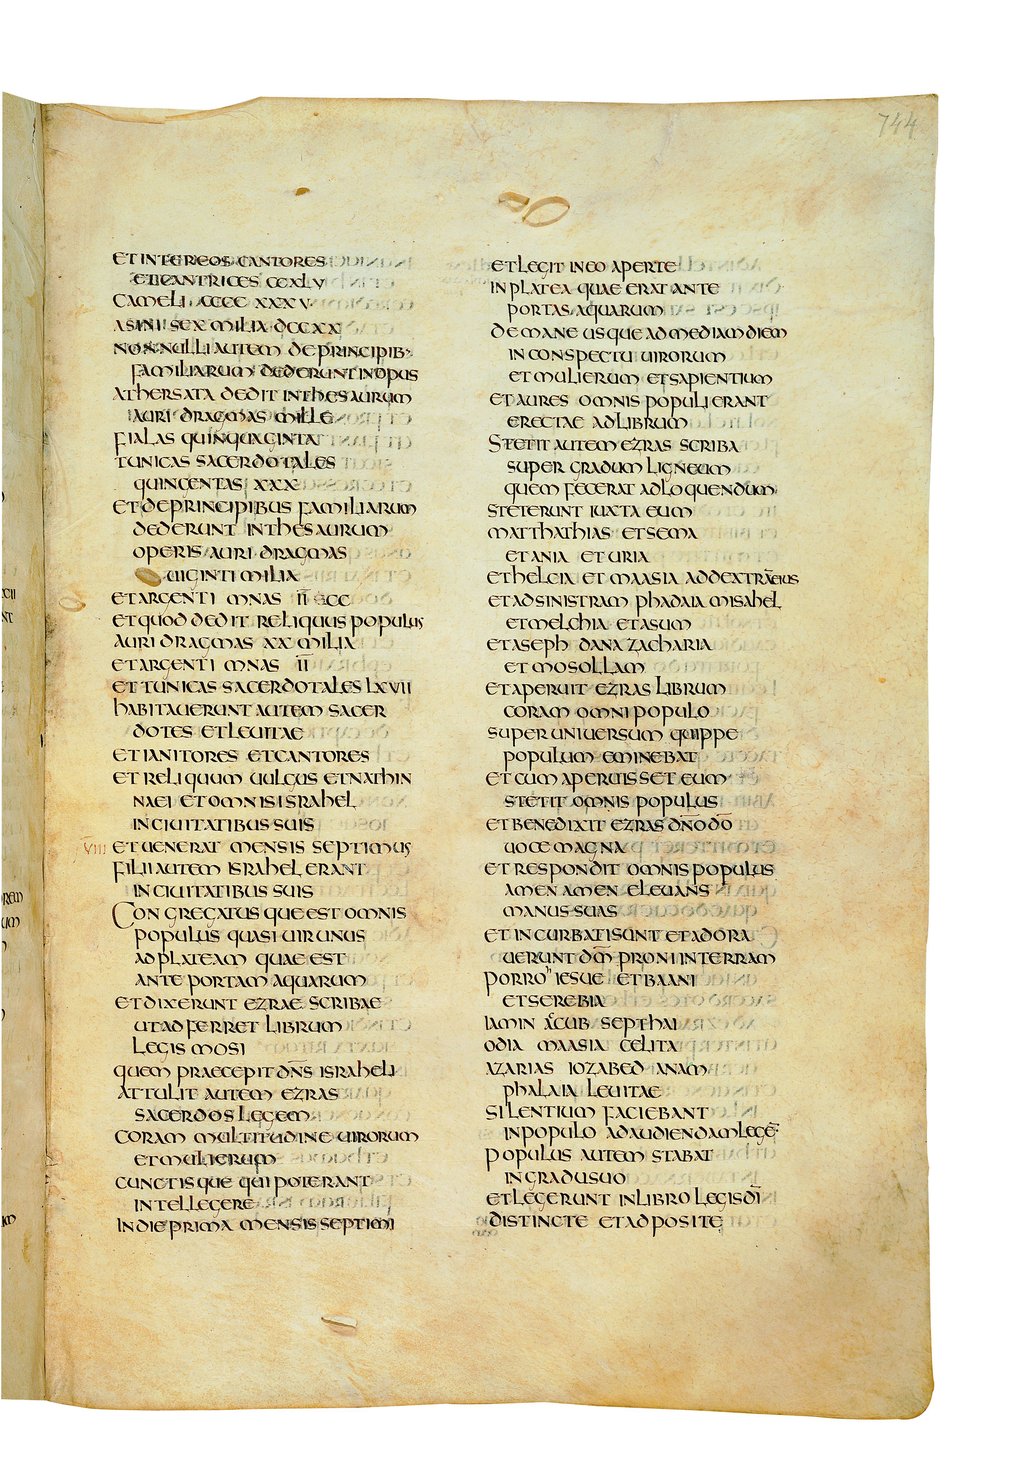 744
ET INTER EOS CANTORES
ET CANTRICES CCXLV
CAMELI CCCC XXXV
ASINI SEX MILIA DCCXX
NONNULLI AUTEM DE PRINCIPIB·
FAMILIARUM DEDERUNT IN OPUS
ATHERSATA DEDIT IN THESAURUM
AURI DRAGMAS MILLE
FIALAS QUINQUAGINTA
TUNICAS SACERDOTALES
QUINGENTAS XXX
ET DE PRINCIPIBUS FAMILIARUM
DEDERUNT IN THESAURUM
OPERIS AURI DRAGMAS
UIGINTI MILIA
ET ARGENTI MNAS II CC
ET QUOD DEDIT RELIQUUS POPULUS
AURI DRAGMAS XX MILIA
ET ARGENTI MNAS II
ET TUNICAS SACERDOTALES LXVII
HABITAUERUNT AUTEM SACER
DOTES ET LEUITAE
ET IANITORES ET CANTORES
ET RELIQUUM UULGUS ET NATHIN
NAEI ET OMNIS ISRAHEL
IN CIUITATIBUS SUIS
VIII ET UENERAT MENSIS SEPTIMUS
FILII AUTEM ISRAHEL ERANT
IN CIUITATIBUS SUIS
CONGREGATUS QUE EST OMNIS
POPULUS QUASI UIR UNUS
AD PLATEAM QUAE EST
ANTE PORTAM AQUARUM
ET DIXERUNT EZRAE SCRIBAE
UT ADFERRET LIBRUM
LEGIS MOSI
QUEM PRAECEPIT DN̄S ISRAHELI
ATTULIT AUTEM EZRAS
SACERDOS LEGEM
CORAM MULTITUDINE UIRORUM
ET MULIERUM
CUNCTISQUE QUI POTERANT
INTELLEGERE
IN DIE PRIMA MENSIS SEPTIMI
ET LEGIT IN EO APERTE
IN PLATEA QUAE ERAT ANTE
PORTAS AQUARUM
DE MANE USQUE AD MEDIAM DIEM
IN CONSPECTU UIRORUM
ET MULIERUM ET SAPIENTIUM
ET AURES OMNIS POPULI ERANT
ERECTAE AD LIBRUM
STETIT AUTEM EZRAS SCRIBA
SUPER GRADUM LIGNEUM
QUEM FECERAT AD LOQUENDUM
STETERUNT IUXTA EUM
MATTHATHIAS ET SEMA
ET ANIA ET URIA
ET HELCIA ET MAASIA AD DEXTRĀ EIUS
ET AD SINISTRAM PHADAIA MISAHEL
ET MELCHIA ET ASUM
ET ASEPH DANA ZACHARIA
ET MOSOLLAM
ET APERUIT EZRAS LIBRUM
CORAM OMNI POPULO
SUPER UNIUERSUM QUIPPE
POPULUM EMINEBAT
ET CUM APERUISSET EUM
STETIT OMNIS POPULUS
ET BENEDIXIT EZRAS DN̄O D̄O
UOCE MAGNA
ET RESPONDIT OMNIS POPULUS
AMEN AMEN ELEUANS
MANUS SUAS
ET INCURBATI SUNT ET ADORA
UERUNT D̄M PRONI IN TERRAM
PORRO IESUE ET BAANI
ET SEREBIA
IAMIN ACCUB SEPTHAI
ODIA MAASIA CELITA
AZARIAS IOZABED ANAM
PHALAIA LEUITAE
SILENTIUM FACIEBANT
IN POPULO AD AUDIENDAM LEGĒ·
POPULUS AUTEM STABAT
IN GRADU SUO
ET LEGERUNT IN LIBRO LEGIS D̄I
DISTINCTE ET ADPOSITE